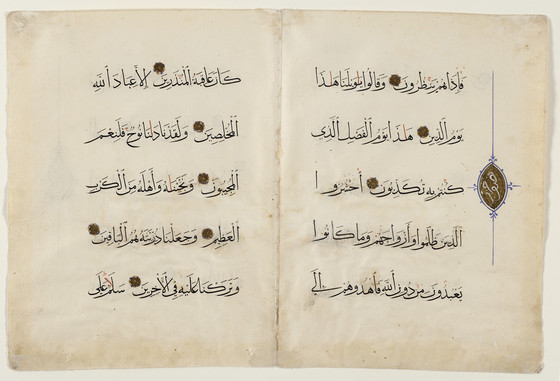 فإذا هم ينظرون وقالوا يويلنا هذا
يوم الدين هذا يوم الفصل الذي
كنتم به تكذبون احشروا
الذين ظلموا وأزواجهم وما كانوا
يعبدون من دون الله فاهدوهم إلى
كان عاقبة المنذرين إلا عباد الله
المخلصين ولقد نادانا نوح فلنعم
المجيبون ونجيناه وأهله من الكرب
العظيم وجعلنا ذريته هم الباقين
وتركنا عليه في الآخرين سلم على